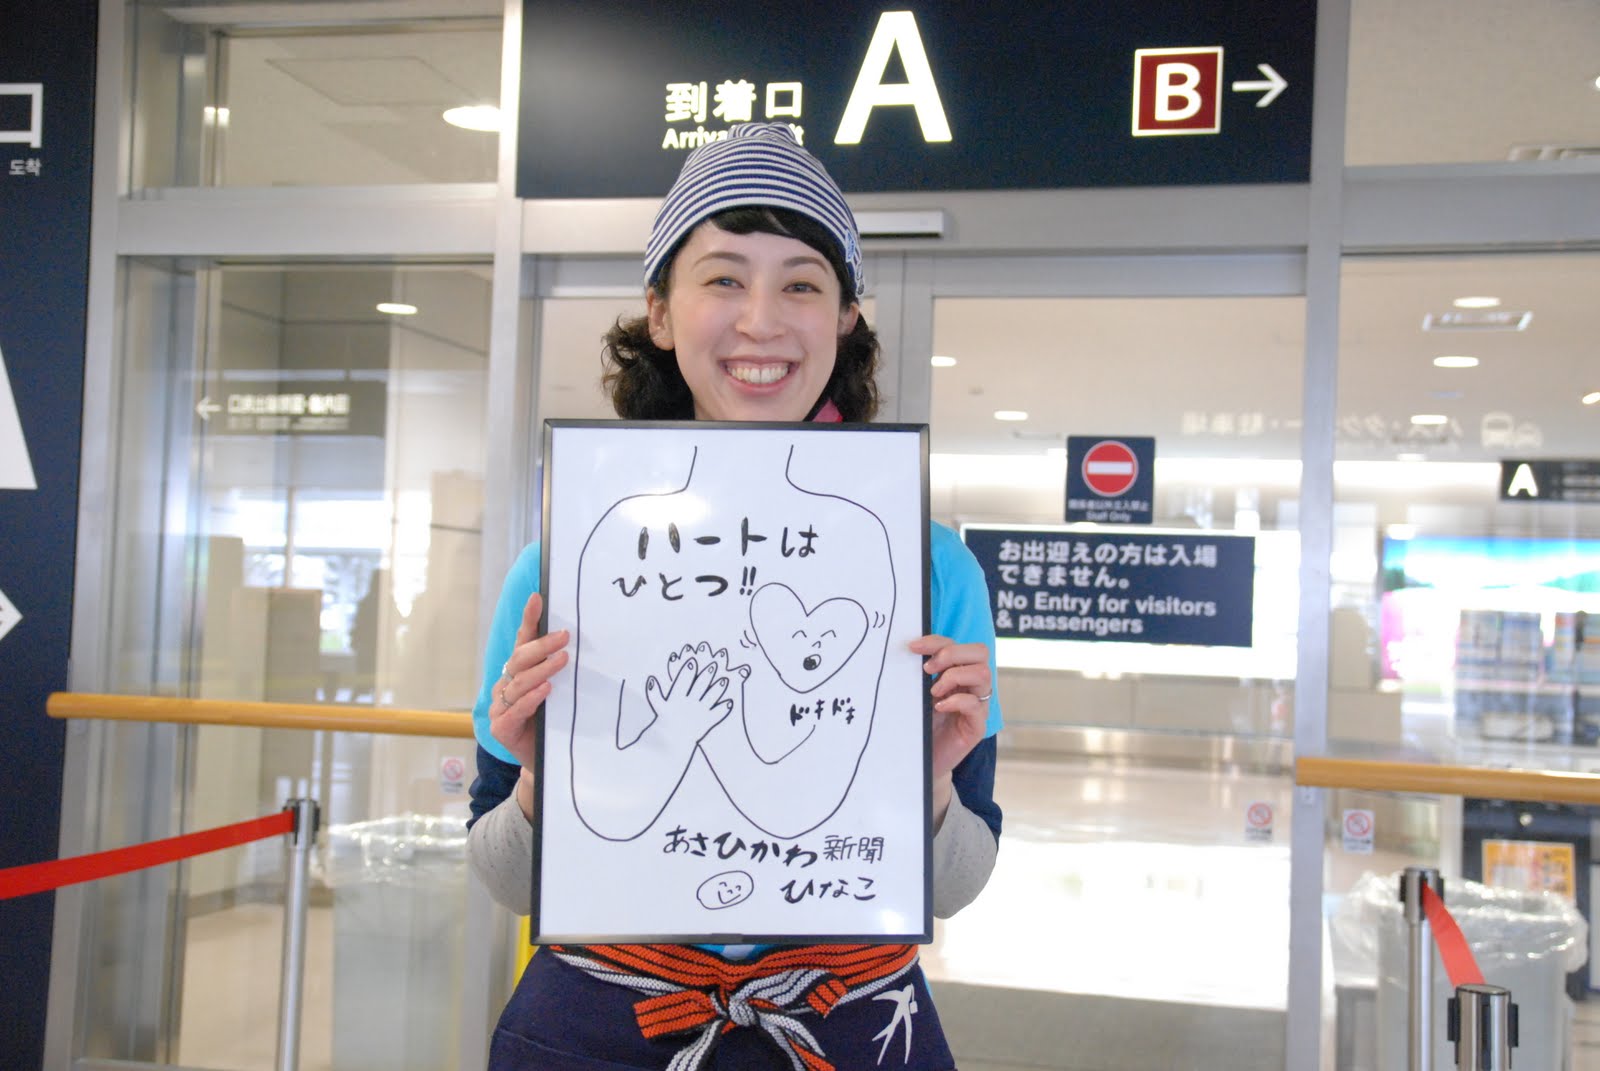 口
도착
到着口
A
B
お出迎えの方は入場
できません。
No Entry for visitors
& passengers
Staff Only
A
ハートは
ひとつ!!
ドキドキ
あさひかわ新聞
ひなこ